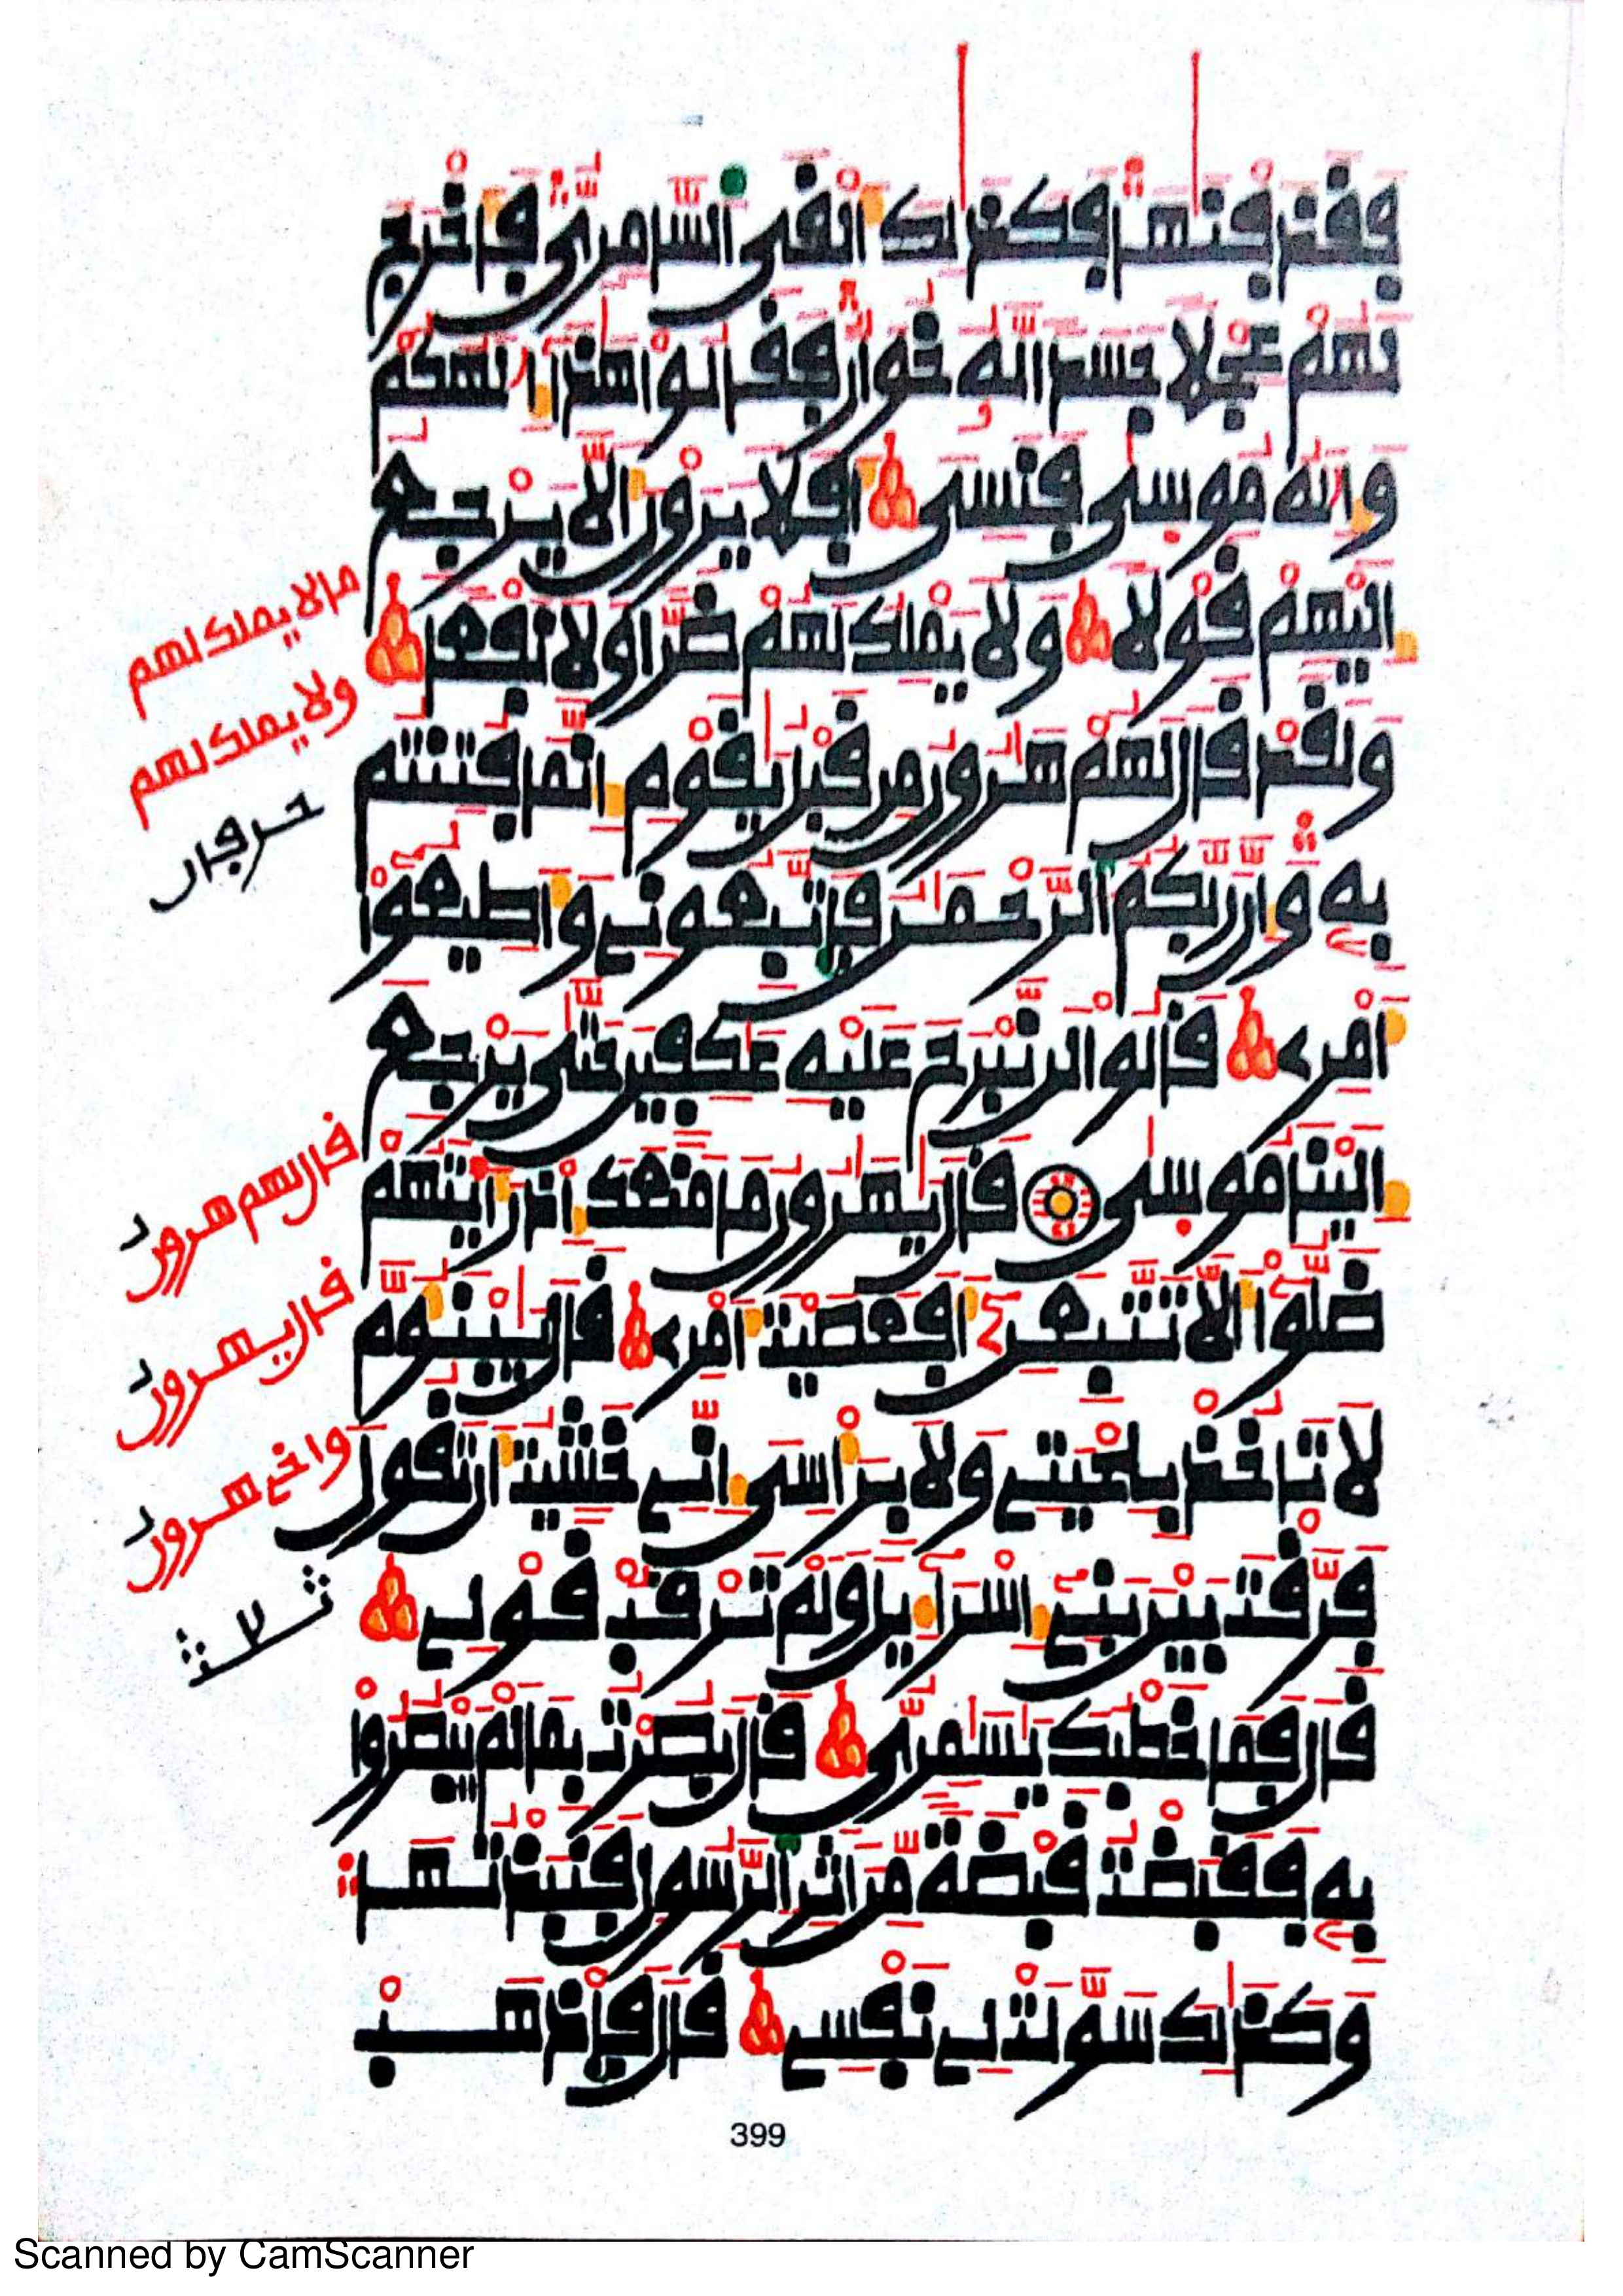 فَقَذَفْنَٰهَا فَكَذَٰلِكَ أَلْقَى السَّامِرِيُّ فَأَخْرَجَ
لَهُمْ عِجْلًا جَسَدًا لَّهُ خُوَارٌ فَقَالُوا هَٰذَا إِلَٰهُكُمْ
وَإِلَٰهُ مُوسَىٰ فَنَسِيَ أَفَلَا يَرَوْنَ أَلَّا يَرْجِعُ
إِلَيْهِمْ قَوْلًا وَلَا يَمْلِكُ لَهُمْ ضَرًّا وَلَا نَفْعًا
وَلَقَدْ قَالَ لَهُمْ هَٰرُونُ مِن قَبْلُ يَٰقَوْمِ إِنَّمَا فُتِنتُم
بِهِ وَإِنَّ رَبَّكُمُ الرَّحْمَٰنُ فَاتَّبِعُونِي وَأَطِيعُوا
أَمْرِي قَالُوا لَن نَّبْرَحَ عَلَيْهِ عَٰكِفِينَ حَتَّىٰ يَرْجِعَ
إِلَيْنَا مُوسَىٰ قَالَ يَٰهَٰرُونُ مَا مَنَعَكَ إِذْ رَأَيْتَهُمْ
ضَلُّوا أَلَّا تَتَّبِعَنِ أَفَعَصَيْتَ أَمْرِي قَالَ يَبْنَؤُمَّ
لَا تَأْخُذْ بِلِحْيَتِي وَلَا بِرَأْسِي إِنِّي خَشِيتُ أَن تَقُولَ
فَرَّقْتَ بَيْنَ بَنِي إِسْرَاءِيلَ وَلَمْ تَرْقُبْ قَوْلِي
قَالَ فَمَا خَطْبُكَ يَٰسَٰمِرِيُّ قَالَ بَصُرْتُ بِمَا لَمْ يَبْصُرُوا
بِهِ فَقَبَضْتُ قَبْضَةً مِّنْ أَثَرِ الرَّسُولِ فَنَبَذْتُهَا
وَكَذَٰلِكَ سَوَّلَتْ لِي نَفْسِي قَالَ فَاذْهَبْ
ما لا يملك لهم
ولا يملك لهم
حرفان
قال لهم هرون
قال يهرون
واخي هرون
ثلاث
399
Scanned by CamScanner